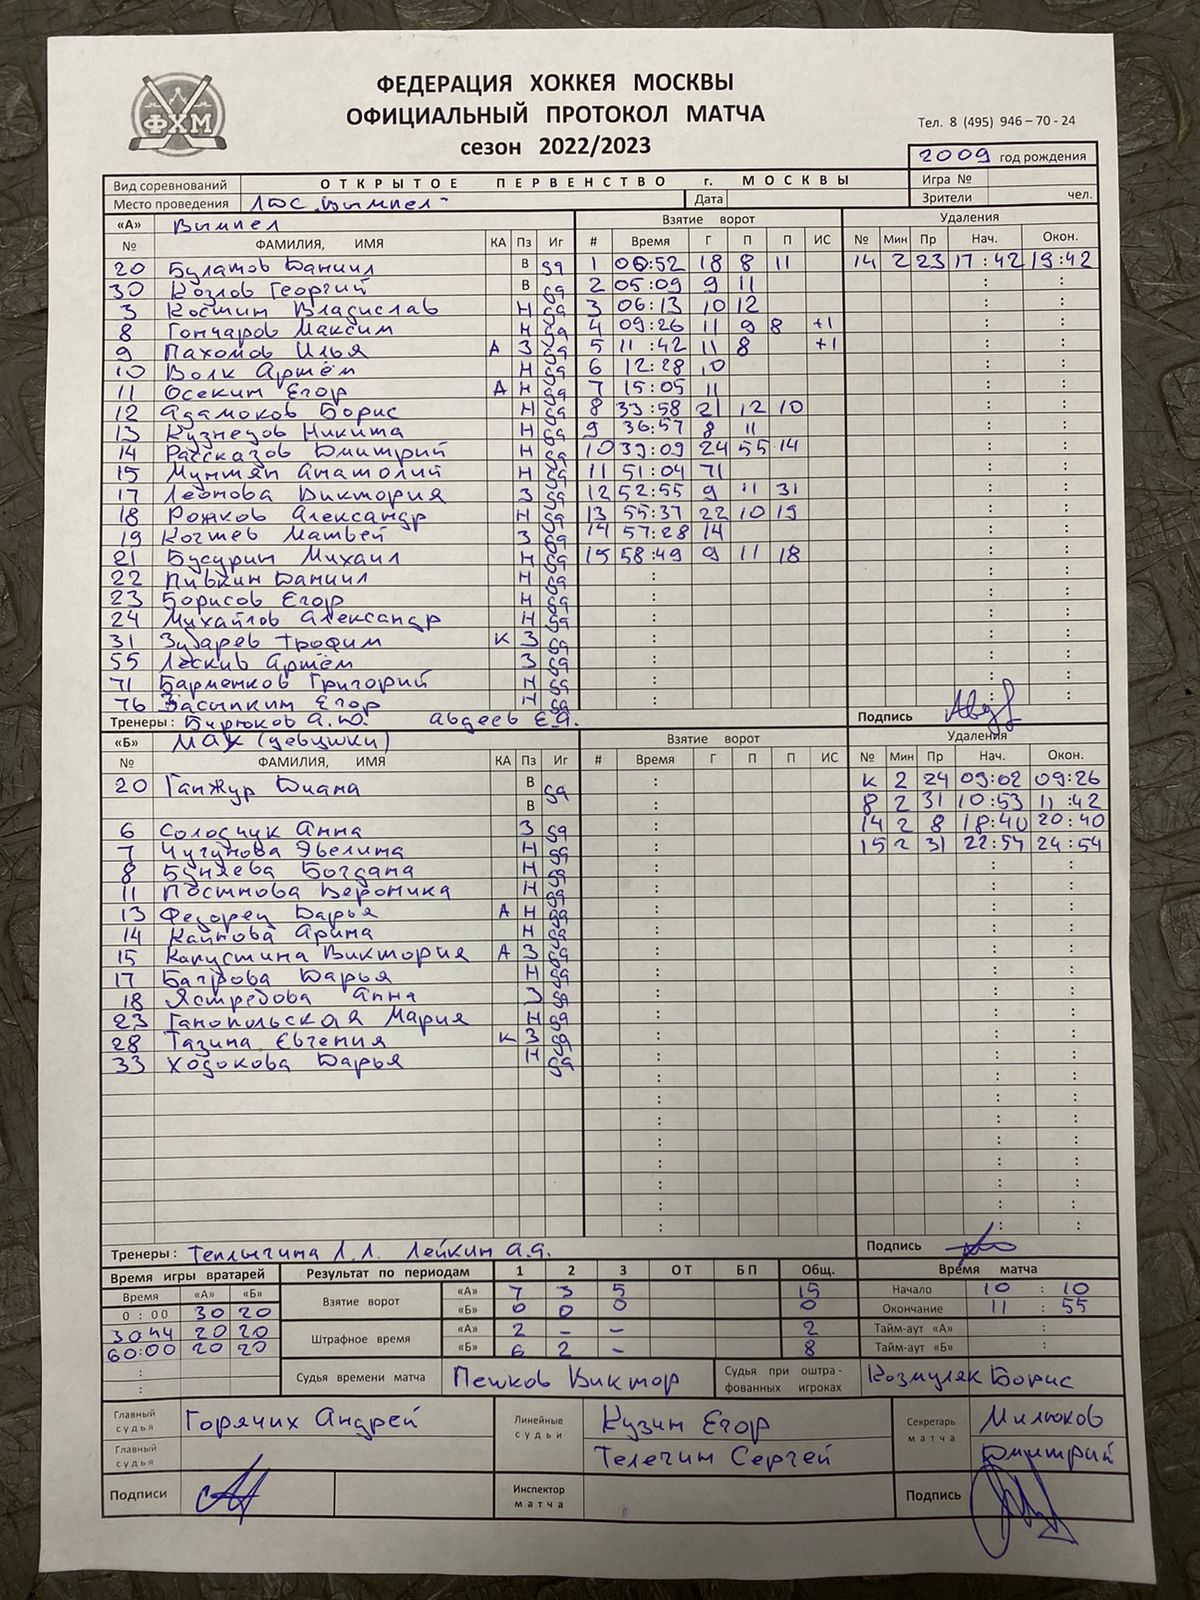 ФХМ
ФЕДЕРАЦИЯ ХОККЕЯ МОСКВЫ
ОФИЦИАЛЬНЫЙ ПРОТОКОЛ МАТЧА
сезон 2022/2023
Тел. 8 (495) 946–70-24
2009 год рождения
Вид соревнований ОТКРЫТОЕ ПЕРВЕНСТВО г. МОСКВЫ Игра №
Место проведения ЛДС "Вымпел" Дата Зрители чел.
«А» Вымпел Взятие ворот Удаления
№ ФАМИЛИЯ, ИМЯ КА Пз Иг # Время Г П П ИС № Мин Пр Нач. Окон.
20 Булатов Даниил В да 1 00:52 18 8 11 14 2 23 17:42 19:42
30 Козлов Георгий В да 2 05:09 9 11
3 Костин Владислав Н да 3 06:13 10 12
8 Гончаров Максим Н да 4 09:26 11 9 8 +1
9 Пахомов Илья А З да 5 11:42 11 8 +1
10 Волк Артём Н да 6 12:28 10
11 Осекин Егор А Н да 7 15:05 11
12 Адамоков Борис Н да 8 33:58 21 12 10
13 Кузнецов Никита Н да 9 36:57 8 11
14 Рассказов Дмитрий Н да 10 39:09 24 55 14
15 Мунтян Анатолий Н да 11 51:04 71
17 Леонова Виктория З да 12 52:55 9 11 31
18 Рожков Александр Н да 13 55:37 22 10 19
19 Когтев Матвей З да 14 57:28 14
21 Бусурин Михаил Н да 15 58:49 9 11 18
22 Пивкин Даниил Н да
23 Борисов Егор Н да
24 Михайлов Александр Н да
31 Зубарев Трофим К З да
55 Леския Артём З да
71 Барменков Григорий Н да
76 Засыпкин Егор Н да
Тренеры: Бирюков А.Ю. Авдеев Е.А. Подпись
«Б» МАХ (девушки) Взятие ворот Удаления
№ ФАМИЛИЯ, ИМЯ КА Пз Иг # Время Г П П ИС № Мин Пр Нач. Окон.
20 Ганжур Диана В да К 2 24 09:02 09:26
В 8 2 31 10:53 11:42
6 Солодчук Анна З да 14 2 8 18:40 20:40
7 Чугунова Эвелина Н да 15 2 31 22:54 24:54
8 Буняева Богдана Н да
11 Постнова Вероника Н да
13 Федорец Дарья А Н да
14 Каинова Арина Н да
15 Капустина Виктория А З да
17 Багрова Дарья Н да
18 Ястребова Анна З да
23 Ганопольская Мария Н да
28 Тазина Евгения К З да
33 Ходокова Дарья Н да
Тренеры: Теплыгина Л.Л. Лейкин А.Я. Подпись
Время игры вратарей Результат по периодам 1 2 3 ОТ БП Общ. Время матча
Время «А» «Б» Взятие ворот «А» 7 3 5 15 Начало 10 : 10
0:00 30 20 «Б» 0 0 0 0 Окончание 11 : 55
30:44 20 20 Штрафное время «А» 2 – – 2 Тайм-аут «А»
60:00 20 20 «Б» 6 2 – 8 Тайм-аут «Б»
Судья времени матча Пешков Виктор Судья при оштрафованных игроках Козмуляк Борис
Главный судья Горячих Андрей Линейные судьи Кузин Егор Секретарь матча Милюков
Главный судья Телегин Сергей Дмитрий
Подписи Инспектор матча Подпись